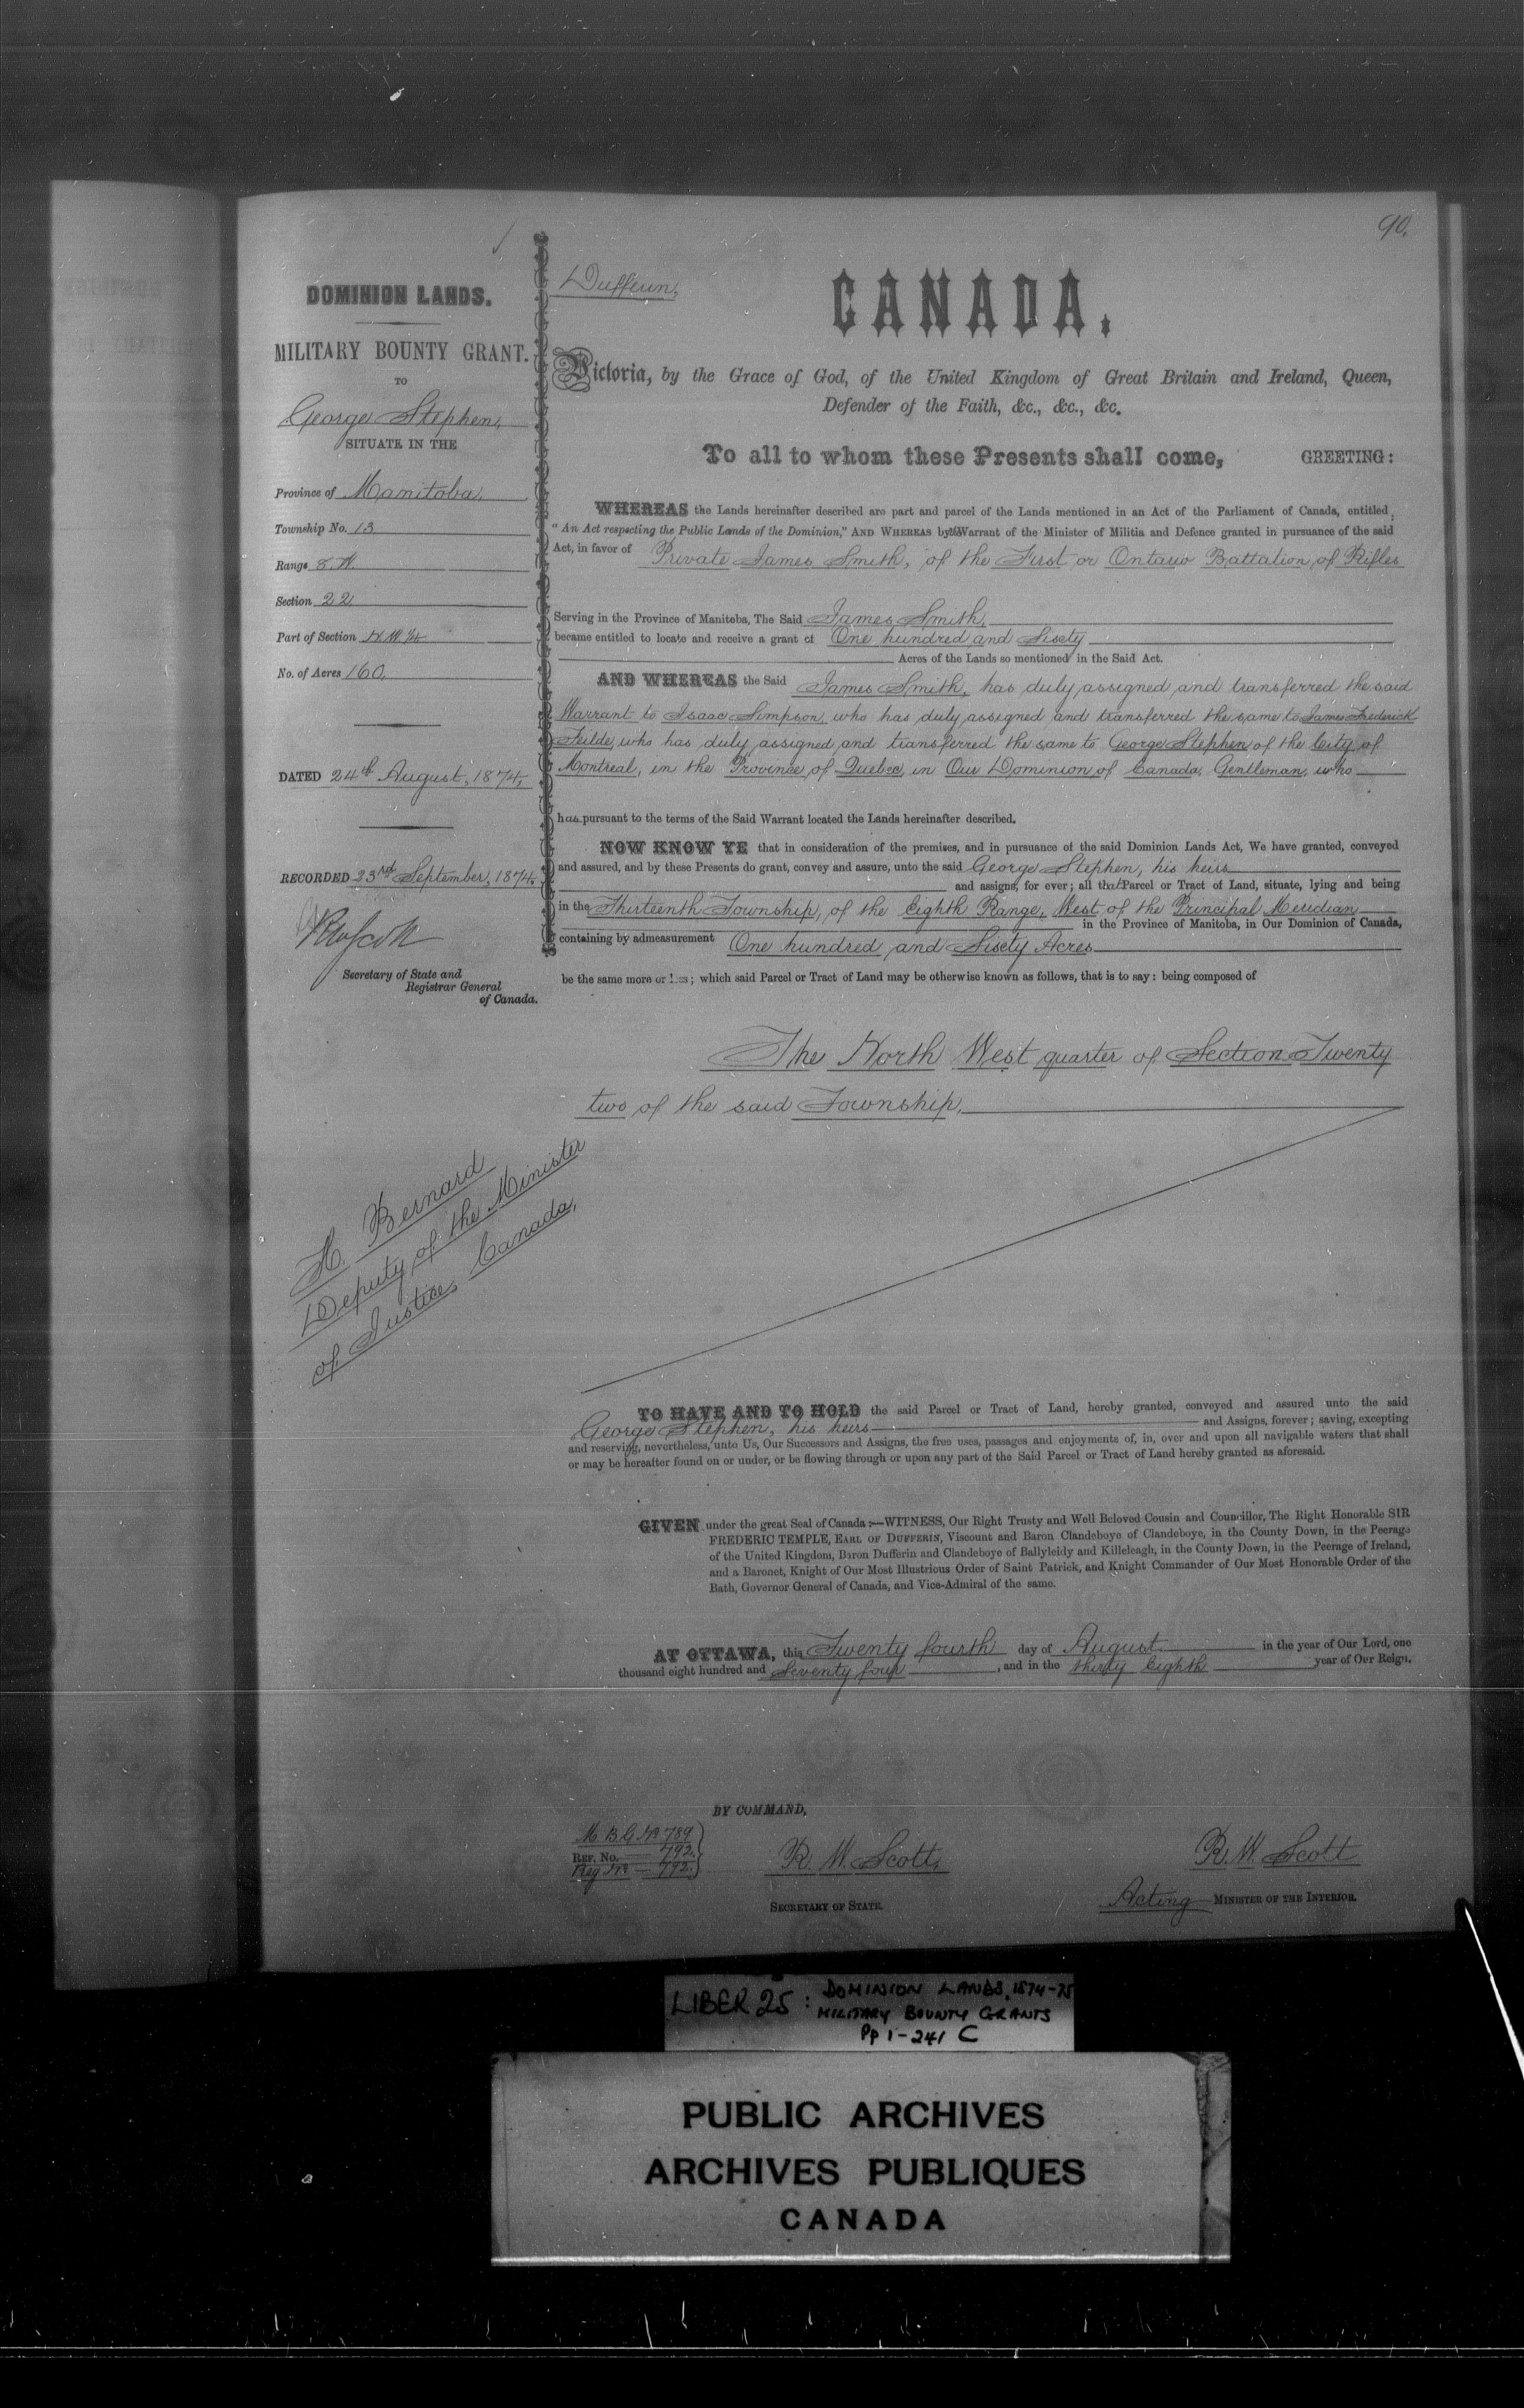 90.
DOMINION LANDS.
MILITARY BOUNTY GRANT.
TO
George Stephen,
SITUATE IN THE
Province of Manitoba,
Township No. 13
Range 8. W.
Section 22
Part of Section N.W. 1/4
No. of Acres 160.
DATED 24th August, 1874,
RECORDED 23rd September, 1874.
RWScott
Secretary of State and
Registrar General
of Canada.
H. Bernard
Deputy of the Minister
of Justice, Canada,
Dufferin,
CANADA.
Victoria, by the Grace of God, of the United Kingdom of Great Britain and Ireland, Queen,
Defender of the Faith, &c., &c., &c.
To all to whom these Presents shall come, GREETING:
WHEREAS the Lands hereinafter described are part and parcel of the Lands mentioned in an Act of the Parliament of Canada, entitled,
"An Act respecting the Public Lands of the Dominion," AND WHEREAS by Warrant of the Minister of Militia and Defence granted in pursuance of the said
Act, in favor of Private James Smith, of the First or Ontario Battalion of Rifles
Serving in the Province of Manitoba, The Said James Smith,
became entitled to locate and receive a grant of One hundred and Sixty
Acres of the Lands so mentioned in the Said Act.
AND WHEREAS the Said James Smith, has duly assigned and transferred the said
Warrant to Isaac Simpson, who has duly assigned and transferred the same to James Frederick
who has duly assigned and transferred the same to George Stephen of the City of
Montreal, in the Province of Quebec, in Our Dominion of Canada, Gentleman, who
has pursuant to the terms of the Said Warrant located the Lands hereinafter described.
NOW KNOW YE that in consideration of the premises, and in pursuance of the said Dominion Lands Act, We have granted, conveyed
and assured, and by these Presents do grant, convey and assure, unto the said George Stephen, his heirs
and assigns, for ever; all that Parcel or Tract of Land, situate, lying and being
in the Thirteenth Township, of the Eighth Range, West of the Principal Meridian
in the Province of Manitoba, in Our Dominion of Canada,
containing by admeasurement One hundred and Sixty Acres
be the same more or less; which said Parcel or Tract of Land may be otherwise known as follows, that is to say: being composed of
The North West quarter of Section Twenty
two of the said Township.
TO HAVE AND TO HOLD the said Parcel or Tract of Land, hereby granted, conveyed and assured unto the said
George Stephen, his heirs and Assigns, forever; saving, excepting
and reserving, nevertheless, unto Us, Our Successors and Assigns, the free uses, passages and enjoyments of, in, over and upon all navigable waters that shall
or may be hereafter found on or under, or be flowing through or upon any part of the Said Parcel or Tract of Land hereby granted as aforesaid.
GIVEN under the great Seal of Canada:—WITNESS, Our Right Trusty and Well Beloved Cousin and Councillor, The Right Honorable SIR
FREDERIC TEMPLE, EARL OF DUFFERIN, Viscount and Baron Clandeboye of Clandeboye, in the County Down, in the Peerage
of the United Kingdom, Baron Dufferin and Clandeboye of Ballyleidy and Killeleagh, in the County Down, in the Peerage of Ireland,
and a Baronet, Knight of Our Most Illustrious Order of Saint Patrick, and Knight Commander of Our Most Honorable Order of the
Bath, Governor General of Canada, and Vice-Admiral of the same.
AT OTTAWA, this Twenty fourth day of August in the year of Our Lord, one
thousand eight hundred and Seventy four, and in the thirty Eighth year of Our Reign.
BY COMMAND,
M.B.G. No 789
REF. No. 792.
Reg No 792.
R. W. Scott,
SECRETARY OF STATE.
R. W. Scott
Acting MINISTER OF THE INTERIOR.
LIBER 25: DOMINION LANDS, 1874-75
MILITARY BOUNTY GRANTS
Pp 1-241 C
PUBLIC ARCHIVES
ARCHIVES PUBLIQUES
CANADA